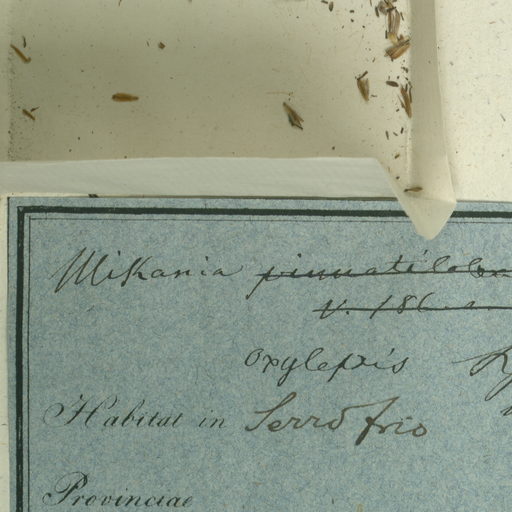 Mikania pinnatiloba
V. 186.
oxylepis
Habitat in Serro frio
Provinciae